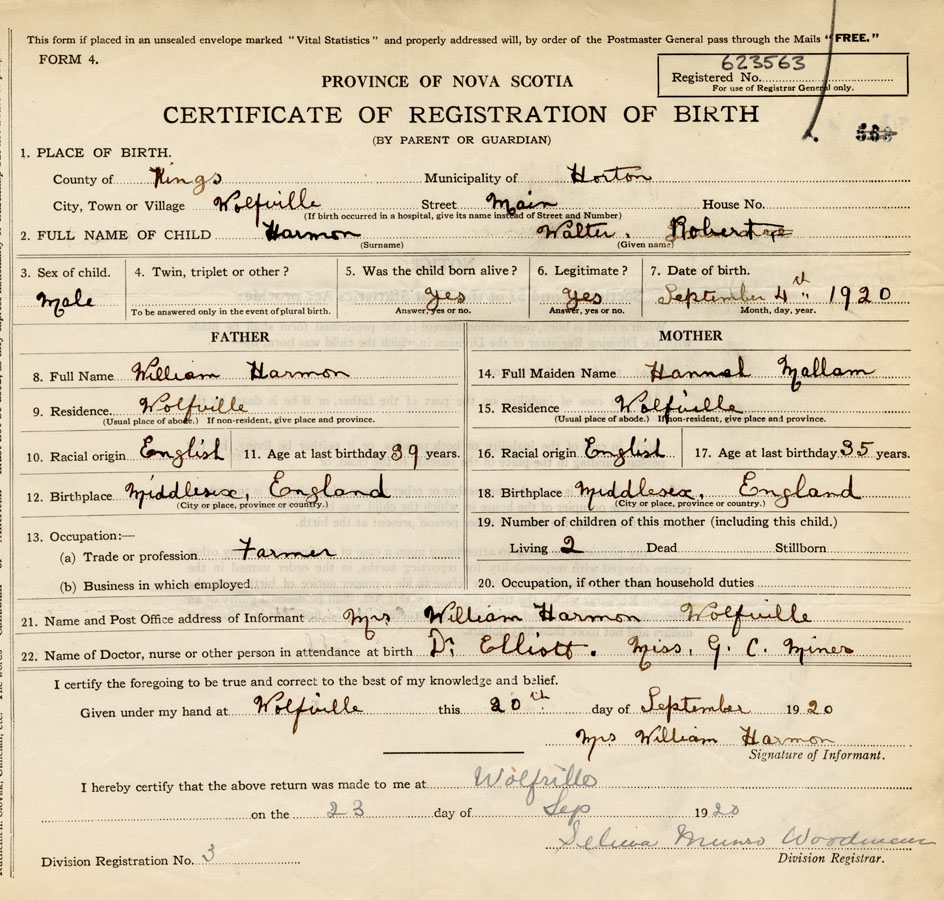 This form if placed in an unsealed envelope marked "Vital Statistics" and properly addressed will, by order of the Postmaster General pass through the Mails "FREE."
FORM 4.
623563
Registered No.
For use of Registrar General only.
PROVINCE OF NOVA SCOTIA
CERTIFICATE OF REGISTRATION OF BIRTH
(BY PARENT OR GUARDIAN)
1. PLACE OF BIRTH.
County of Kings Municipality of Horton
City, Town or Village Wolfville Street Main House No.
(If birth occurred in a hospital, give its name instead of Street and Number)
2. FULL NAME OF CHILD Harmon Walter. Robert
(Surname) (Given name)
3. Sex of child. 4. Twin, triplet or other? 5. Was the child born alive? 6. Legitimate? 7. Date of birth.
Male Yes Yes September 4th 1920
To be answered only in the event of plural birth. Answer, yes or no. Answer, yes or no. Month, day, year.
FATHER MOTHER
8. Full Name William Harmon 14. Full Maiden Name Hannah Mallam
9. Residence. Wolfville 15. Residence Wolfville
(Usual place of abode.) If non-resident, give place and province. (Usual place of abode.) If non-resident, give place and province.
10. Racial origin English 11. Age at last birthday 39 years. 16. Racial origin English 17. Age at last birthday 35 years.
12. Birthplace Middlesex, England 18. Birthplace Middlesex, England
(City or place, province or country.) (City or place, province or country.)
13. Occupation:— 19. Number of children of this mother (including this child.)
(a) Trade or profession Farmer Living 2 Dead Stillborn
(b) Business in which employed 20. Occupation, if other than household duties
21. Name and Post Office address of Informant Mrs William Harmon Wolfville
22. Name of Doctor, nurse or other person in attendance at birth Dr Elliott. Miss. G. C. Miner
I certify the foregoing to be true and correct to the best of my knowledge and belief.
Given under my hand at Wolfville this 20th day of September 1920
Mrs William Harmon
Signature of Informant.
I hereby certify that the above return was made to me at Wolfville
on the 23 day of Sep 1920
Munro Woodman
Division Registration No. 3 Division Registrar.